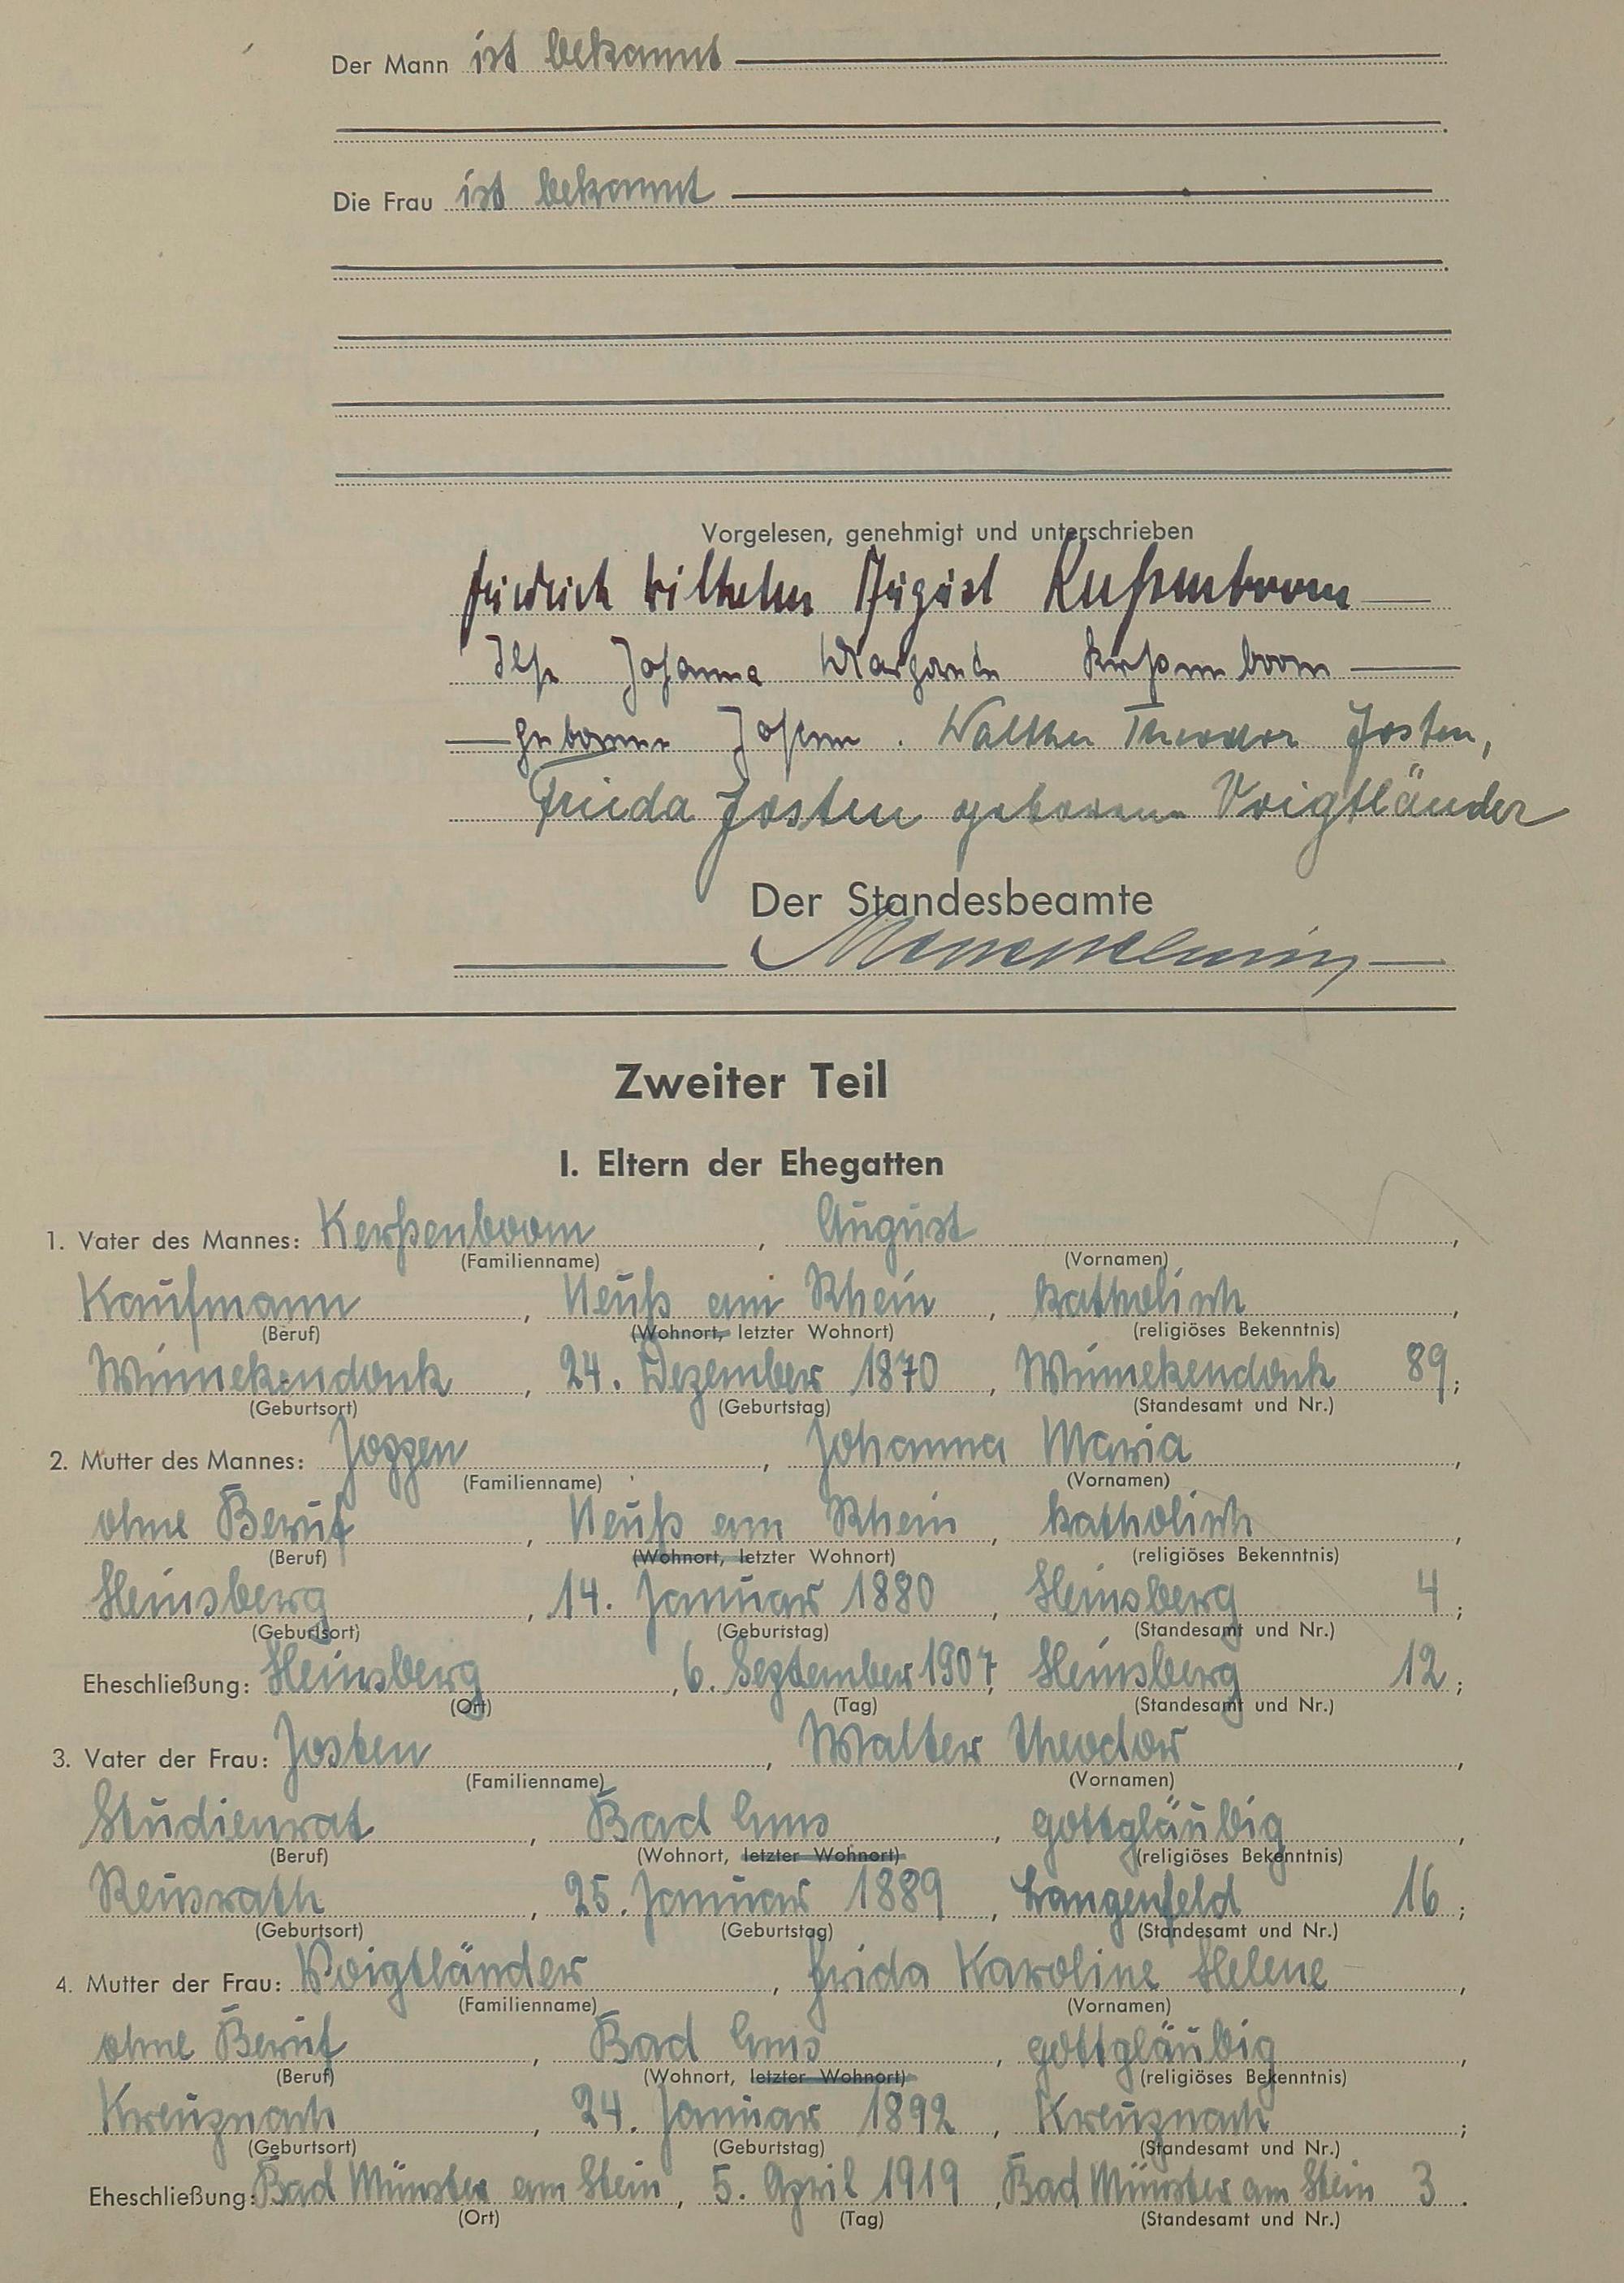 Der Mann ist bekannt
Die Frau ist bekannt
Vorgelesen, genehmigt und unterschrieben
Friedrich Wilhelm August Kerßenboom
Ilse Johanna Margarete Kerßenboom
geborene Josten. Walther Theodor Josten,
Frieda Josten geborene Voigtländer
Der Standesbeamte
Zweiter Teil
I. Eltern der Ehegatten
1. Vater des Mannes: Kerßenboom, August,
(Familienname) (Vornamen)
Kaufmann, Neuß am Rhein, katholisch,
(Beruf) (Wohnort, letzter Wohnort) (religiöses Bekenntnis)
Winnekendonk, 24. Dezember 1870, Winnekendonk 89;
(Geburtsort) (Geburtstag) (Standesamt und Nr.)
2. Mutter des Mannes: Joppen, Johanna Maria,
(Familienname) (Vornamen)
ohne Beruf, Neuß am Rhein, katholisch,
(Beruf) (Wohnort, letzter Wohnort) (religiöses Bekenntnis)
Heinsberg, 14. Januar 1880, Heinsberg 4;
(Geburtsort) (Geburtstag) (Standesamt und Nr.)
Eheschließung: Heinsberg, 6. September 1907, Heinsberg 12;
(Ort) (Tag) (Standesamt und Nr.)
3. Vater der Frau: Josten, Walter Theodor,
(Familienname) (Vornamen)
Studienrat, Bad Ems, gottgläubig,
(Beruf) (Wohnort, letzter Wohnort) (religiöses Bekenntnis)
Reusrath, 25. Januar 1889, Langenfeld 16;
(Geburtsort) (Geburtstag) (Standesamt und Nr.)
4. Mutter der Frau: Voigtländer, Frida Karoline Helene,
(Familienname) (Vornamen)
ohne Beruf, Bad Ems, gottgläubig,
(Beruf) (Wohnort, letzter Wohnort) (religiöses Bekenntnis)
Kreuznach, 24. Januar 1892, Kreuznach;
(Geburtsort) (Geburtstag) (Standesamt und Nr.)
Eheschließung: Bad Münster am Stein, 5. April 1919, Bad Münster am Stein 3.
(Ort) (Tag) (Standesamt und Nr.)